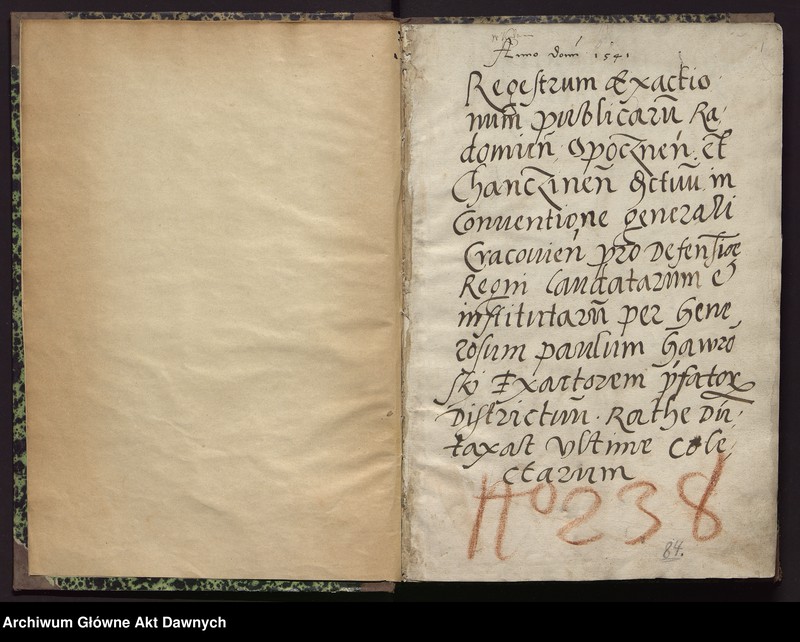 Anno domi 1541
Regestrum Exactio
num publicarũ Ra,
domieñ, Opoczneñ. et
Chanczineñ dictuũ in
Conuentione generali
Cracouieñ pro Defensioe
Regni laudatarum et
institutarũ per Gene,
rosum paulum Gawro
ski Exactorem pfator
Districtuũ. Rathe Dũ,
taxat vltime Cole,
ctarum
No 238
84.
Archiwum Główne Akt Dawnych